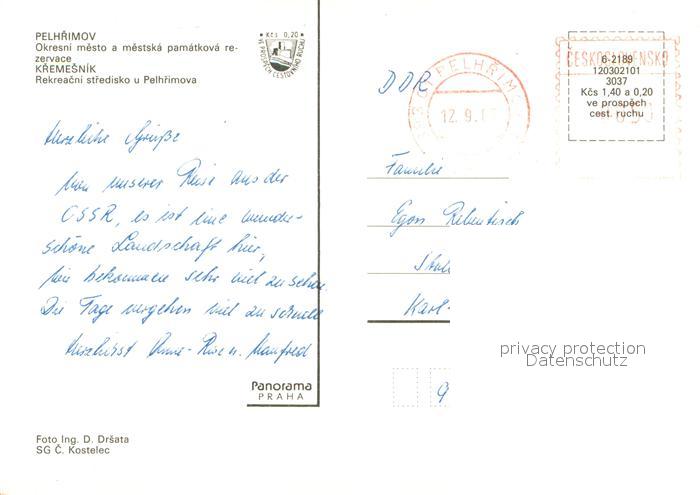 PELHŘIMOV
Okresní město a městská památková re-
zervace
KŘEMEŠNÍK
Rekreační středisko u Pelhřimova
Kčs 0,20
VE PROSPĚCH CESTOVNÍHO RUCHU
Herzliche Grüße
von unserer Reise aus der
CSSR, es ist eine wunder-
schöne Landschaft hier,
wir bekommen sehr viel zu sehen.
Die Tage vergehen viel zu schnell
Herzlichst Anne-Rose u. Manfred
Panorama
PRAHA
Foto Ing. D. Dršata
SG Č. Kostelec
DDR
PELHŘIM
12. 9.
ČESKOSLOVENSKO
6-2189
120302101
3037
Kčs 1,40 a 0,20
ve prospěch
cest. ruchu
Familie
Egon Rebentisch
Karl-
9
privacy protection
Datenschutz